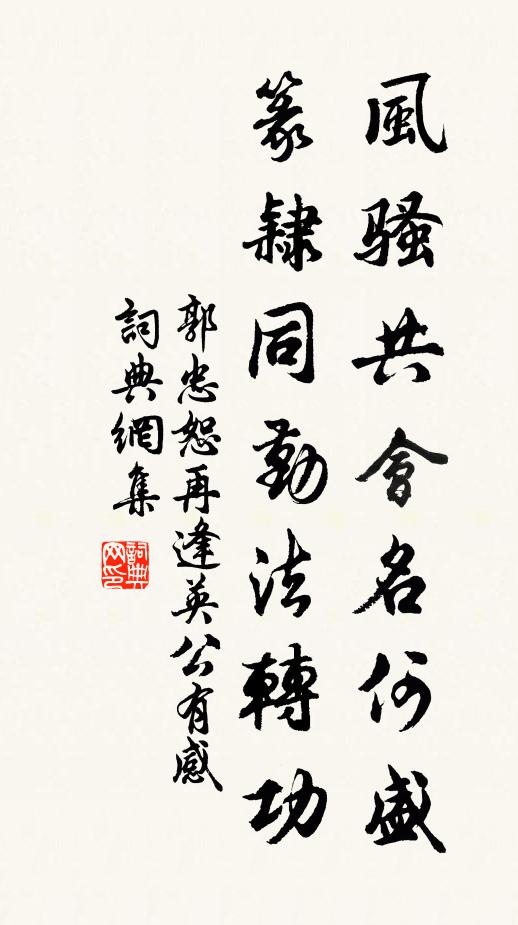 風騷共會名何盛
篆隸同勤法轉功
郭忠恕再逢英公有感
詞典網集
詞典網印